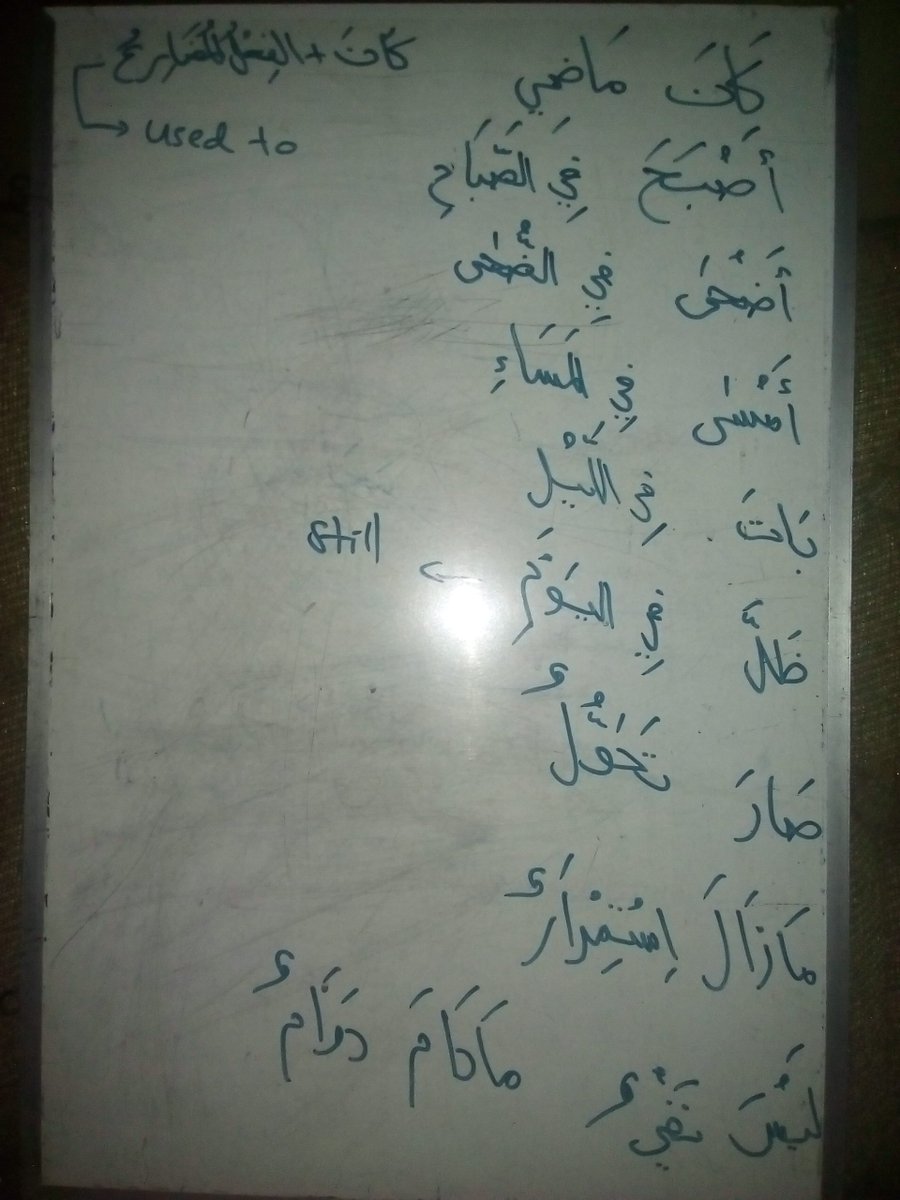 كَانَ مَاضِي
كَانَ + الفِعْلُ المُضَارِعُ
used to
أَصْبَحَ فِي الصَّبَاحِ
أَضْحَى فِي الضُّحَى
أَمْسَى فِي المَسَاءِ
بَاتَ فِي اللَّيْلِ
ظَلَّ فِي اليَوْمِ
still
صَارَ تَحَوُّلٌ
مَازَالَ اِسْتِمْرَارٌ
مَادَامَ دَوَامٌ
لَيْسَ نَفْيٌ